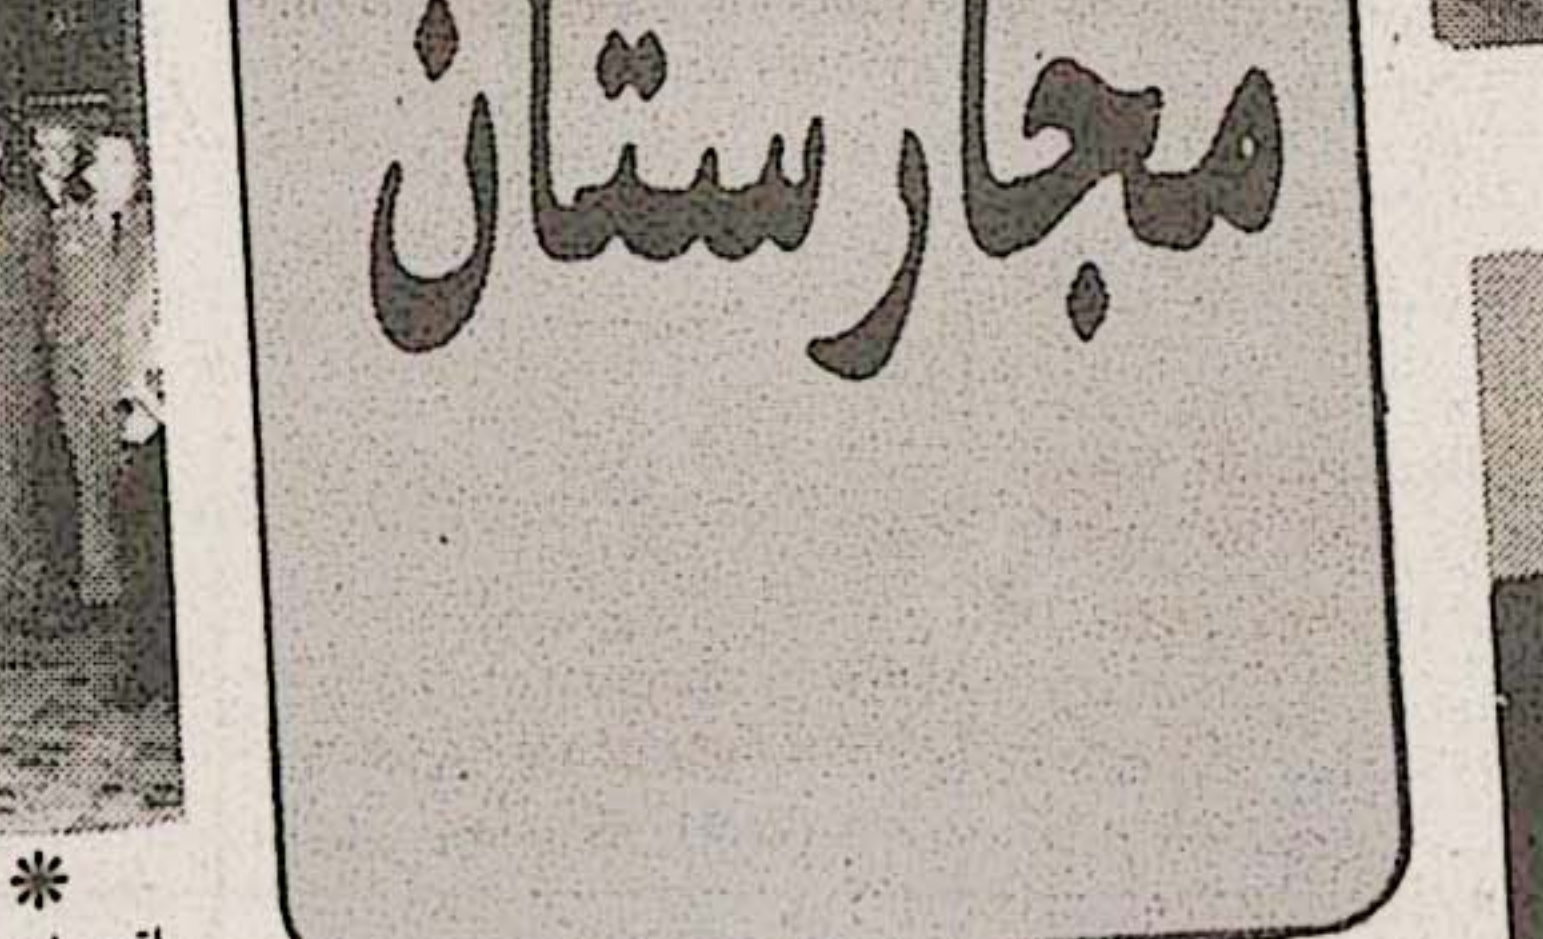 مجارستان